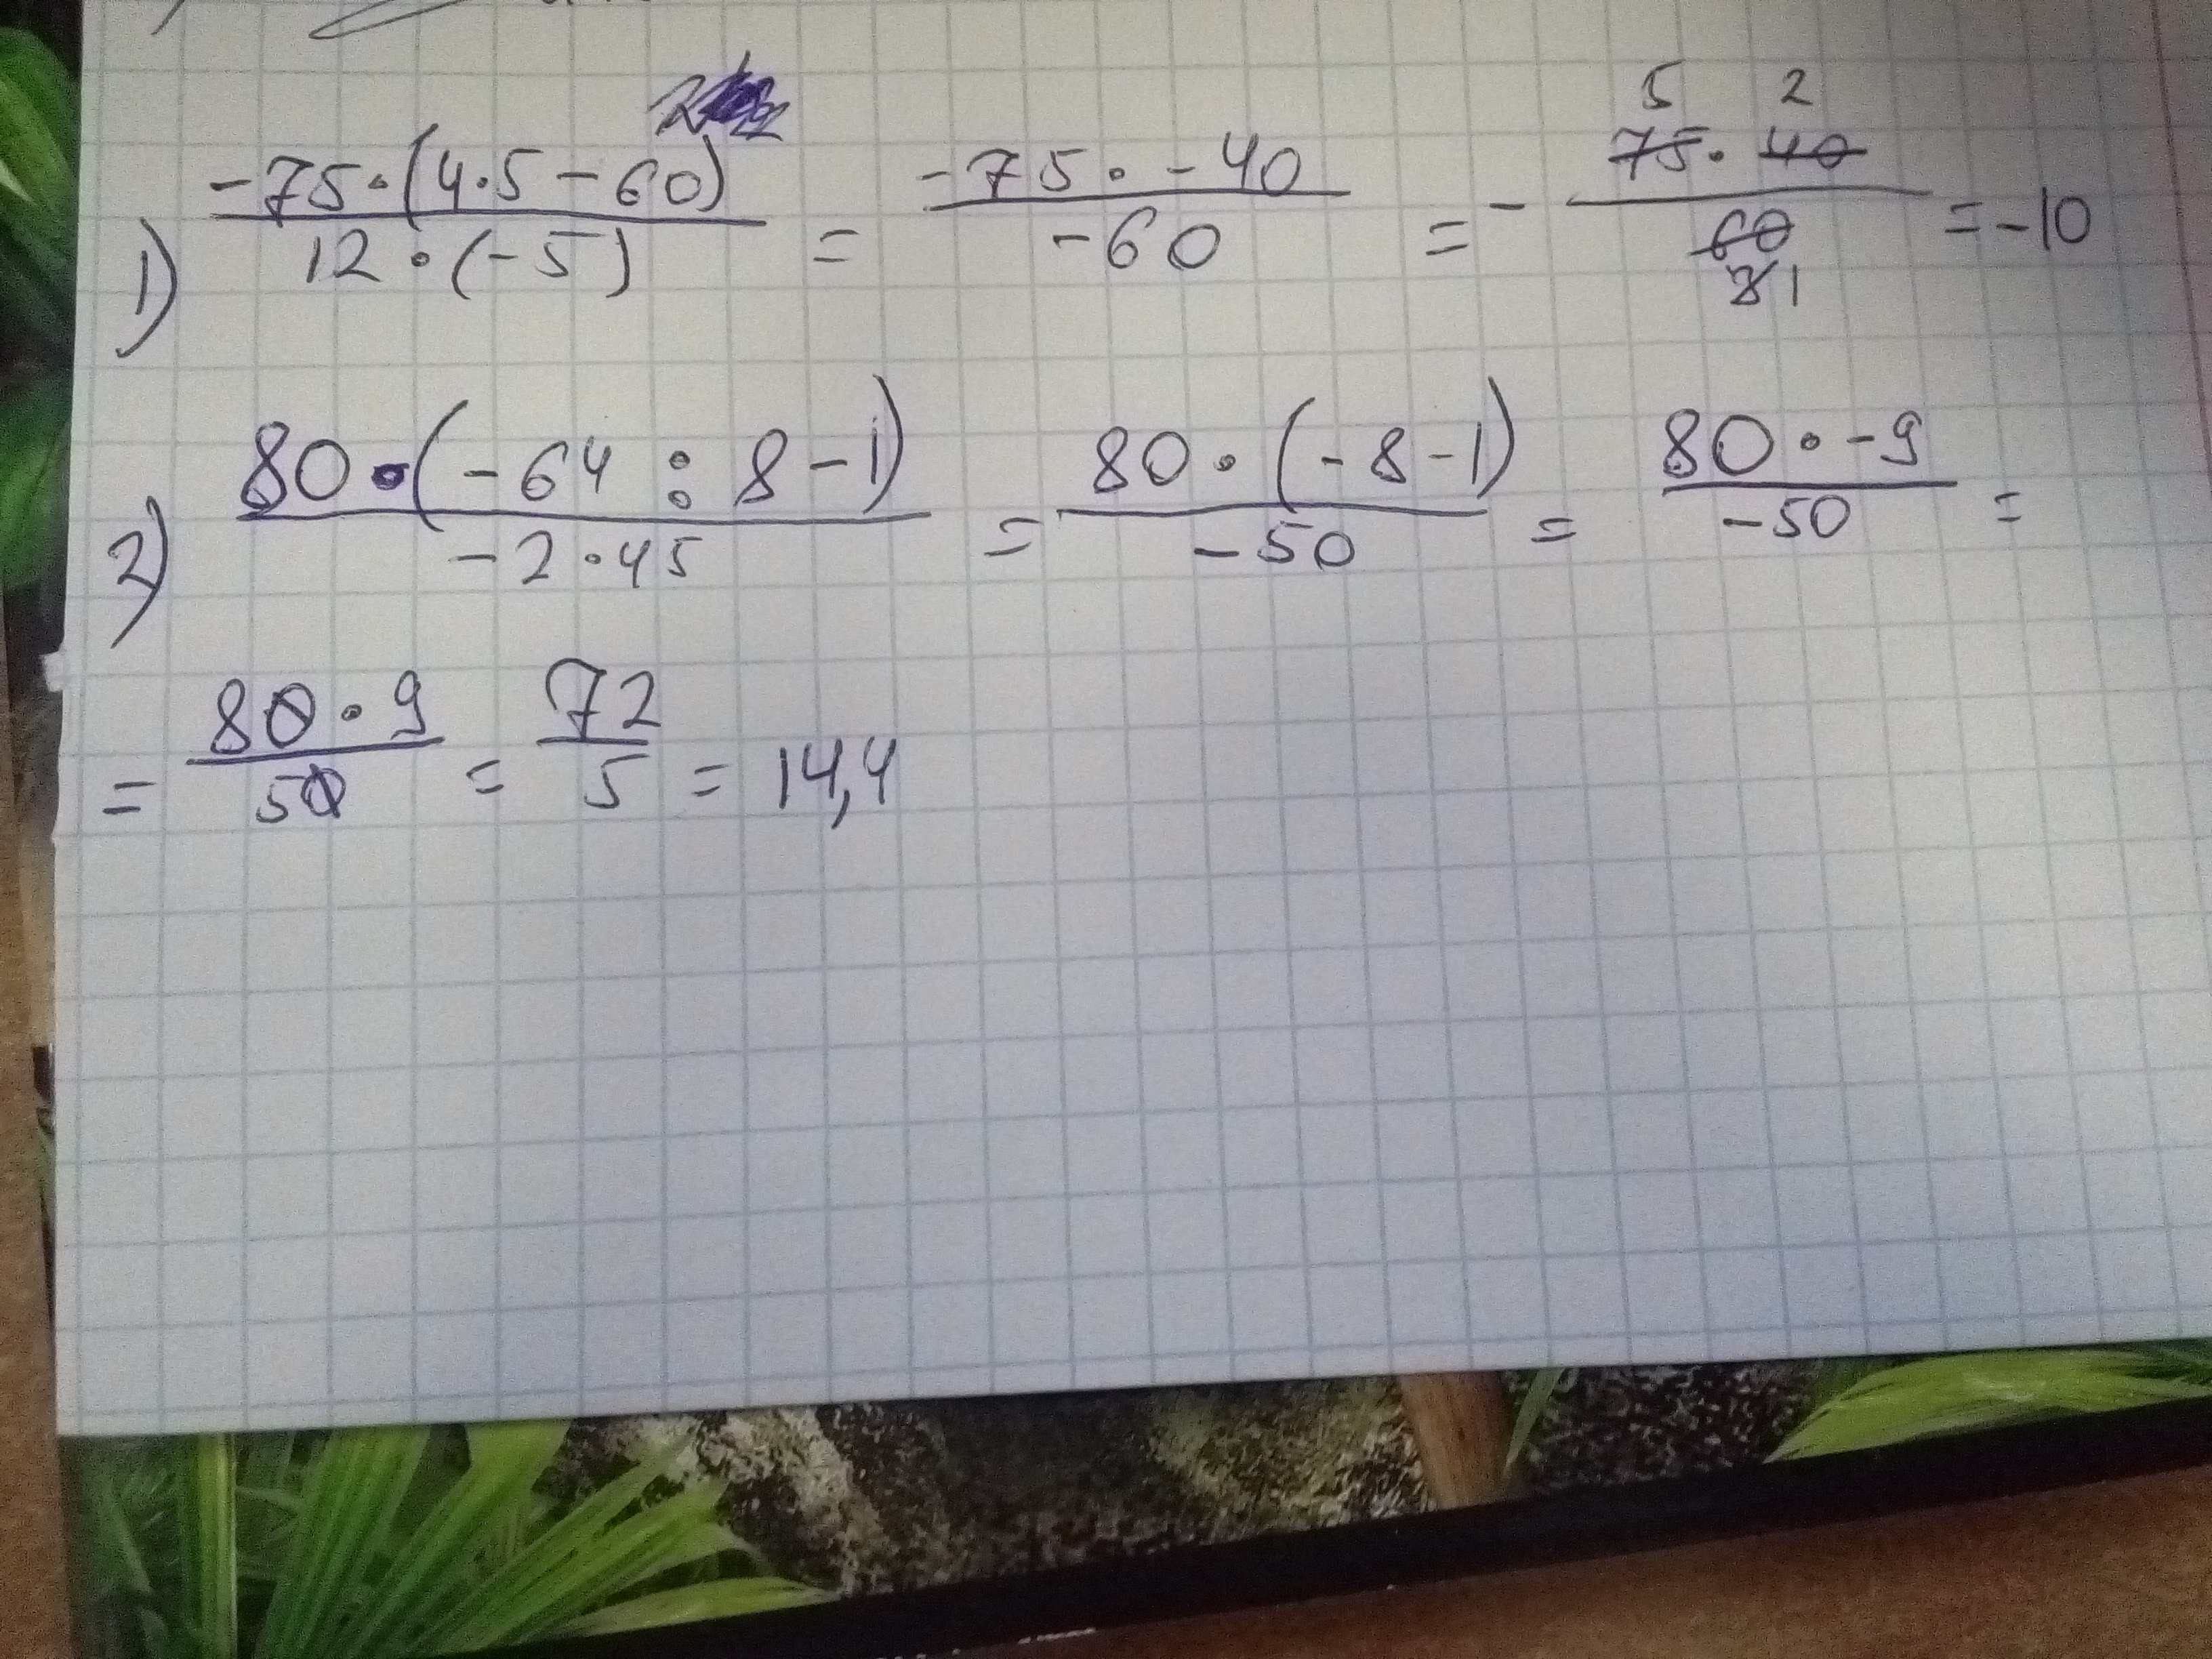 1) -75·(4·5-60) / 12·(-5) = -75·-40 / -60 = - 75·40 / 60 = -10
5 2
31
2) 80·(-64:8-1) / -2·45 = 80·(-8-1) / -50 = 80·-9 / -50 =
= 80·9 / 50 = 72 / 5 = 14,4